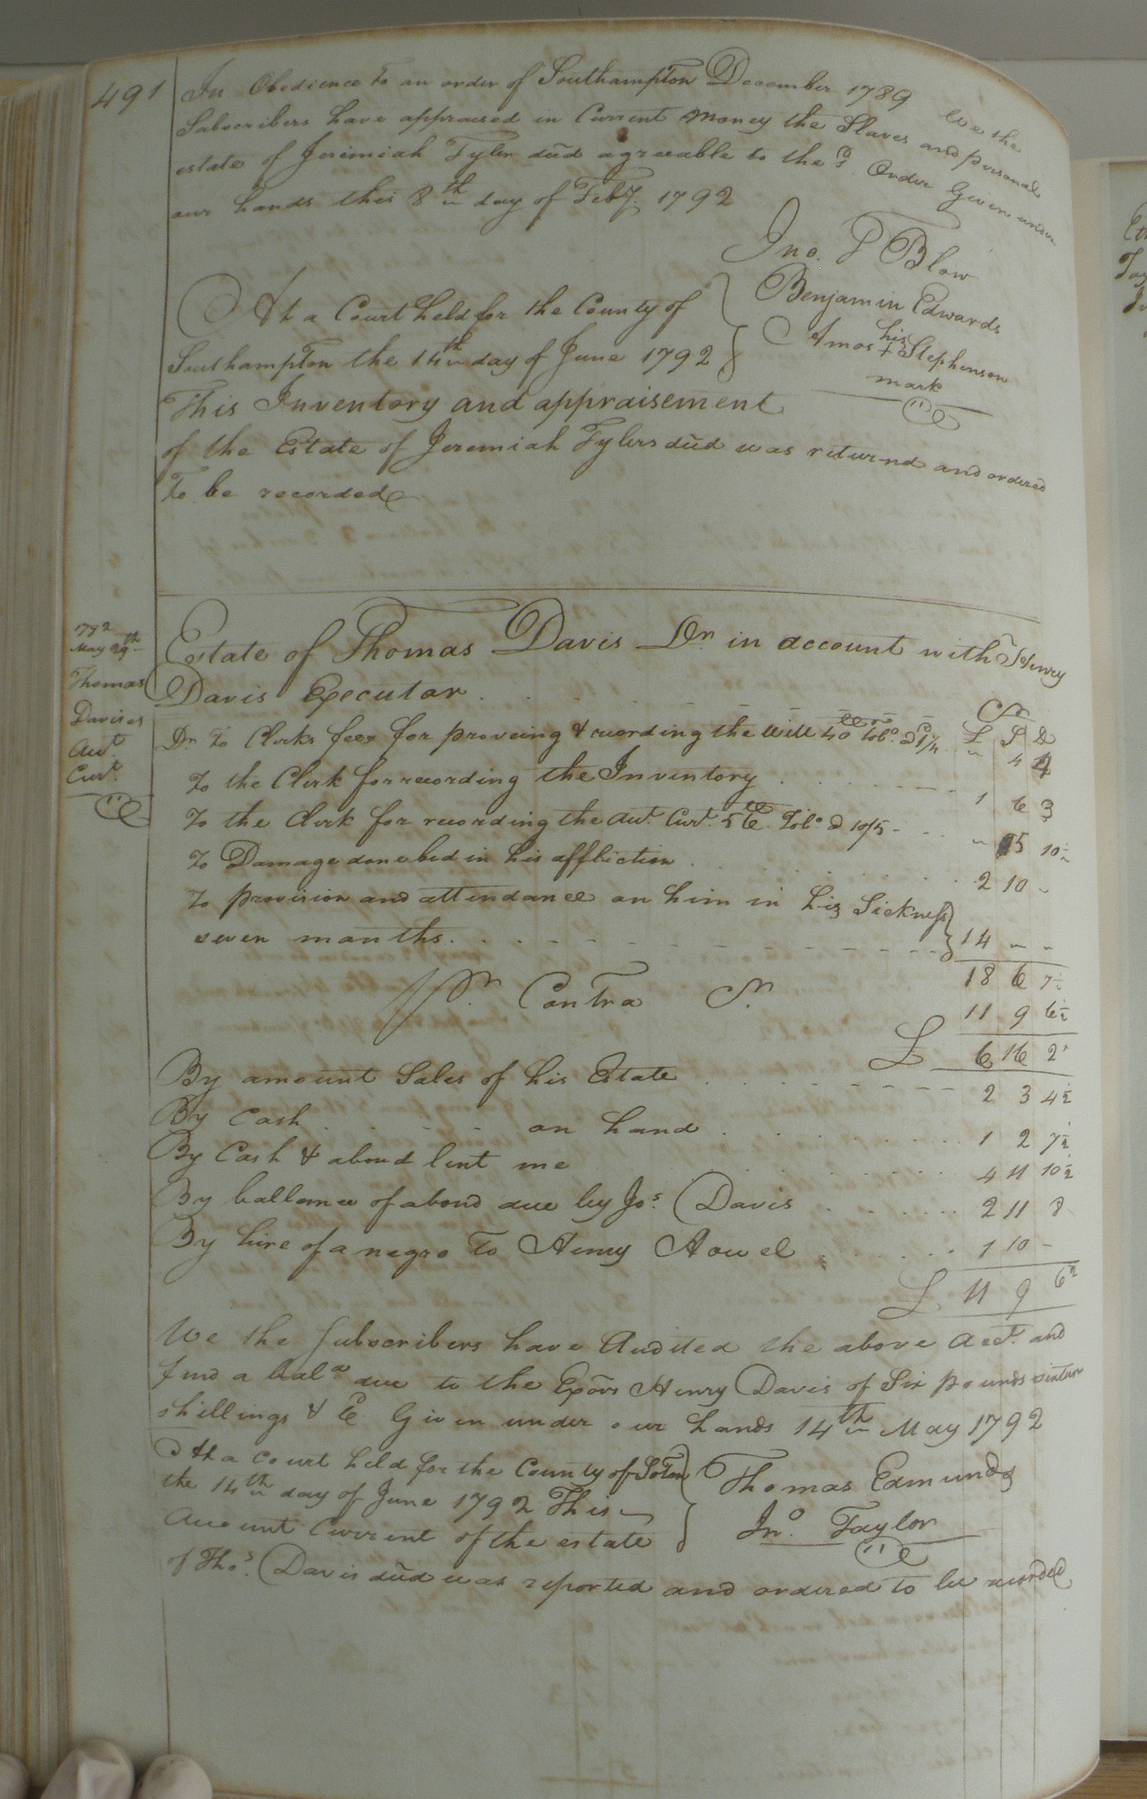 491
In Obedience to an order of Southampton December 1789 We the
Subscribers have appraesed in Current money the Slaves and personal
estate of Jeremiah Tyler deēd agreeable to the sd. Order Given under
our hands this 8th day of Feby. 1792
Jno. P Blow
Benjamin Edwards
his
Amos + Stephenson
mark
At a Court held for the County of
Southampton the 14th day of June 1792
This Inventory and appraisement
of the Estate of Jeremiah Tylers deēd was returnd and ordered
To be recorded
1792
May 29th
Thomas
Davis es
Aut.
Curt.
Estate of Thomas Davis Dr. in account with Henry
Davis Executor
Cr
£ S D
Dr To Clerks fees for proveing & recording the will 40 lb Tobo. 4
To the Clerk for recording the Inventory 1 6 3
To the Clerk for recording the Aut. Curt. Tobo @ 10/5 15 10½
To Damage done bed in his affliction 2 10 -
To provision and attendance on him in his Sickness
seven months 14 - -
18 6 7½
Pr. Contra Cr. 11 9 6½
£ 6 16 2
By amount Sales of his Estate 2 3 4½
By Cash on hand 1 2 7½
By Cash & abond lent me 4 11 10½
By ballance of abond due by Jos. Davis 2 11 8
By hire of a negro To Henry Howel 1 10 -
£ 11 9 6½
We the Subscribers have Audited the above Acct. and
find a bala. due to the Exors Henry Davis of Six pounds sixteen
shillings & Given under our hands 14th May 1792
At a court held for the County of Soton
the 14th day of June 1792 This
Account Current of the estate
of Thos. Davis deēd was reported and ordered to be recorded
Thomas Edmunds
Jno. Taylor